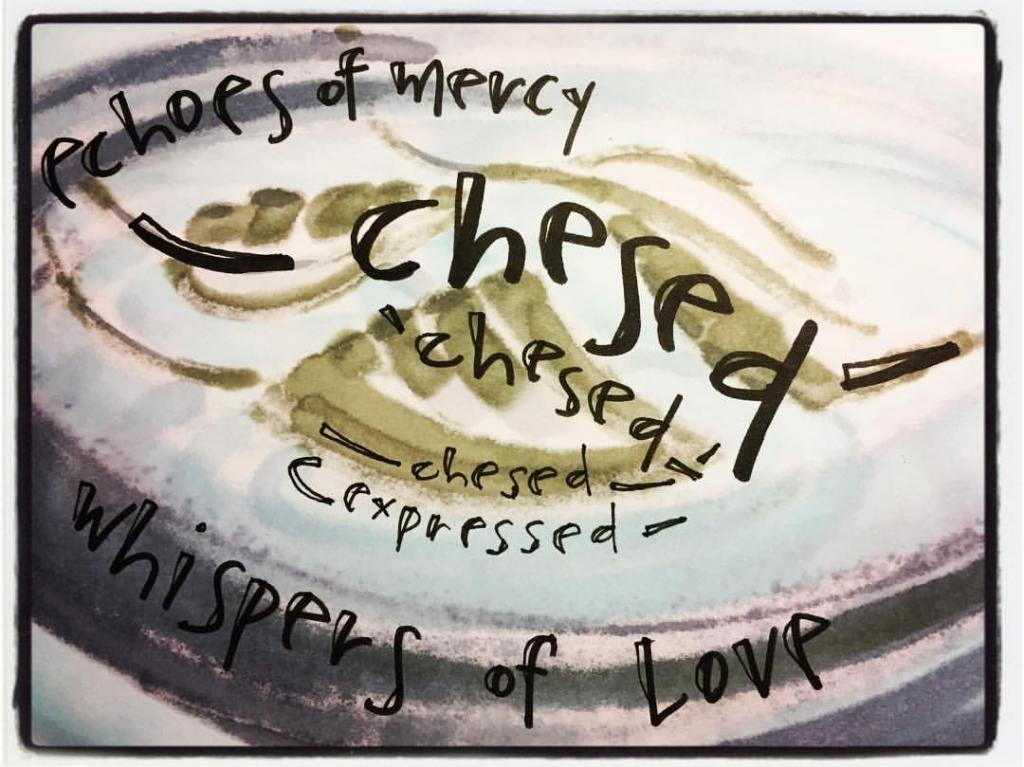 echoes of mercy
- chesed -
'chesed'
- chesed -
(expressed -
whispers of Love